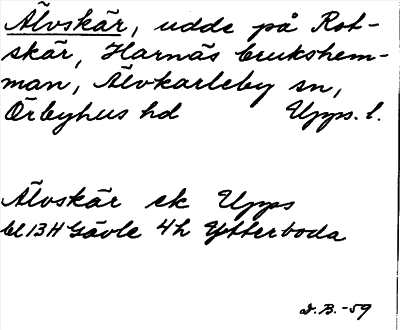 Älvskär, udde på Rot-
skär, Harnäs brukshem-
man, Älvkarleby sn,
Örbyhus hd Upps. l.
Älvskär ek Upps
bl 13H Gävle 4h Ytterboda
D.B.-59